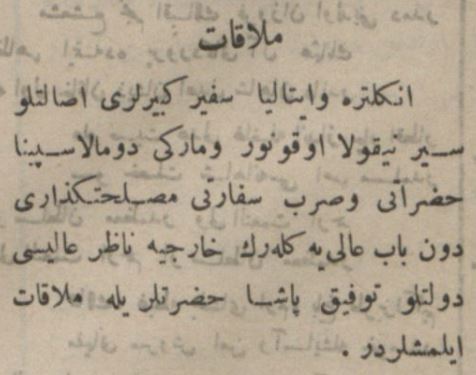 ملاقات
انكلتره وايتاليا سفير كبيرلرى اصالتلو
سير نيقولا اوقونور وماركى دومالاسپينا
حضراتى وصرب سفارتى مصلحتكذارى
دون باب عالى‌يه كله‌رك خارجيه ناظر عاليسى
دولتلو توفيق پاشا حضرتلريله ملاقات
ايلمشلردر .